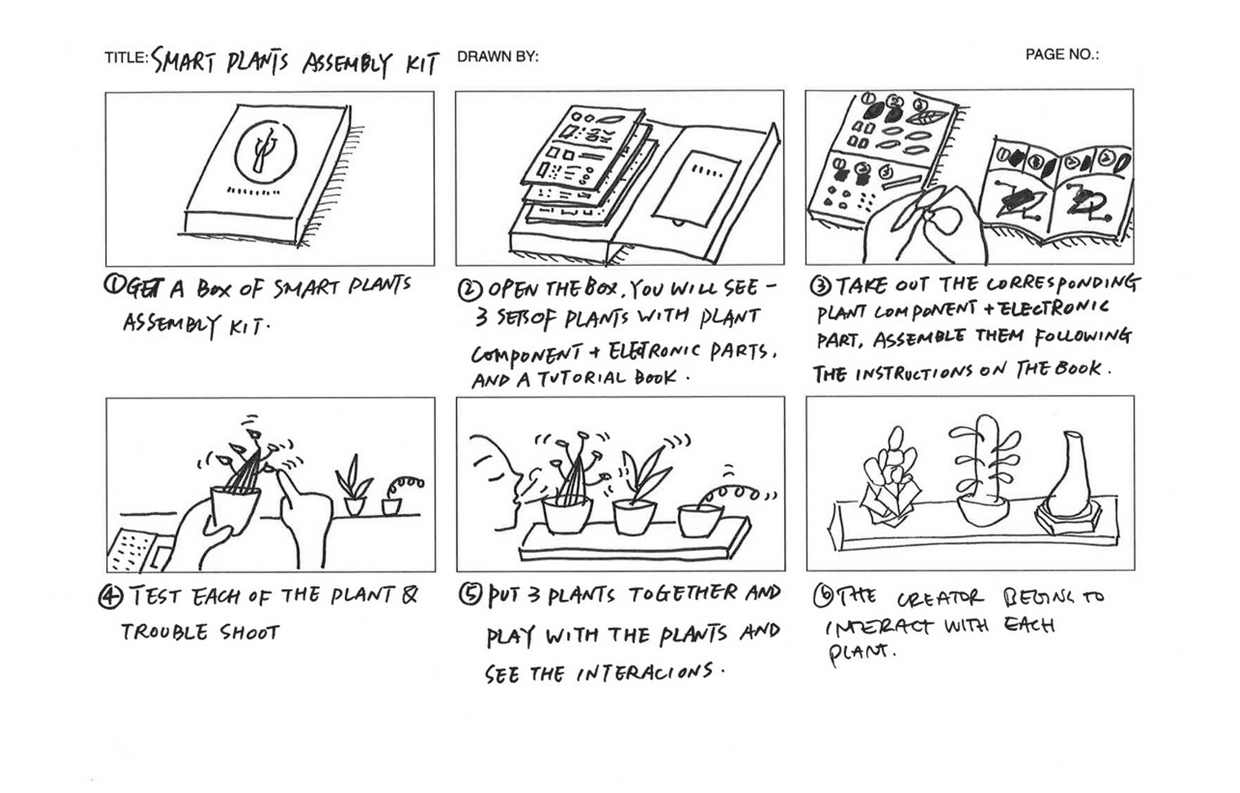 TITLE: SMART PLANTS ASSEMBLY KIT DRAWN BY: PAGE NO.:
① GET A BOX OF SMART PLANTS
ASSEMBLY KIT.
② OPEN THE BOX, YOU WILL SEE –
3 SETS OF PLANTS WITH PLANT
COMPONENT + ELETRONIC PARTS,
AND A TUTORIAL BOOK.
③ TAKE OUT THE CORRESPONDING
PLANT COMPONENT + ELECTRONIC
PART, ASSEMBLE THEM FOLLOWING
THE INSTRUCTIONS ON THE BOOK.
④ TEST EACH OF THE PLANT &
TROUBLE SHOOT
⑤ PUT 3 PLANTS TOGETHER AND
PLAY WITH THE PLANTS AND
SEE THE INTERACIONS.
⑥ THE CREATOR BEGINS TO
INTERACT WITH EACH
PLANT.